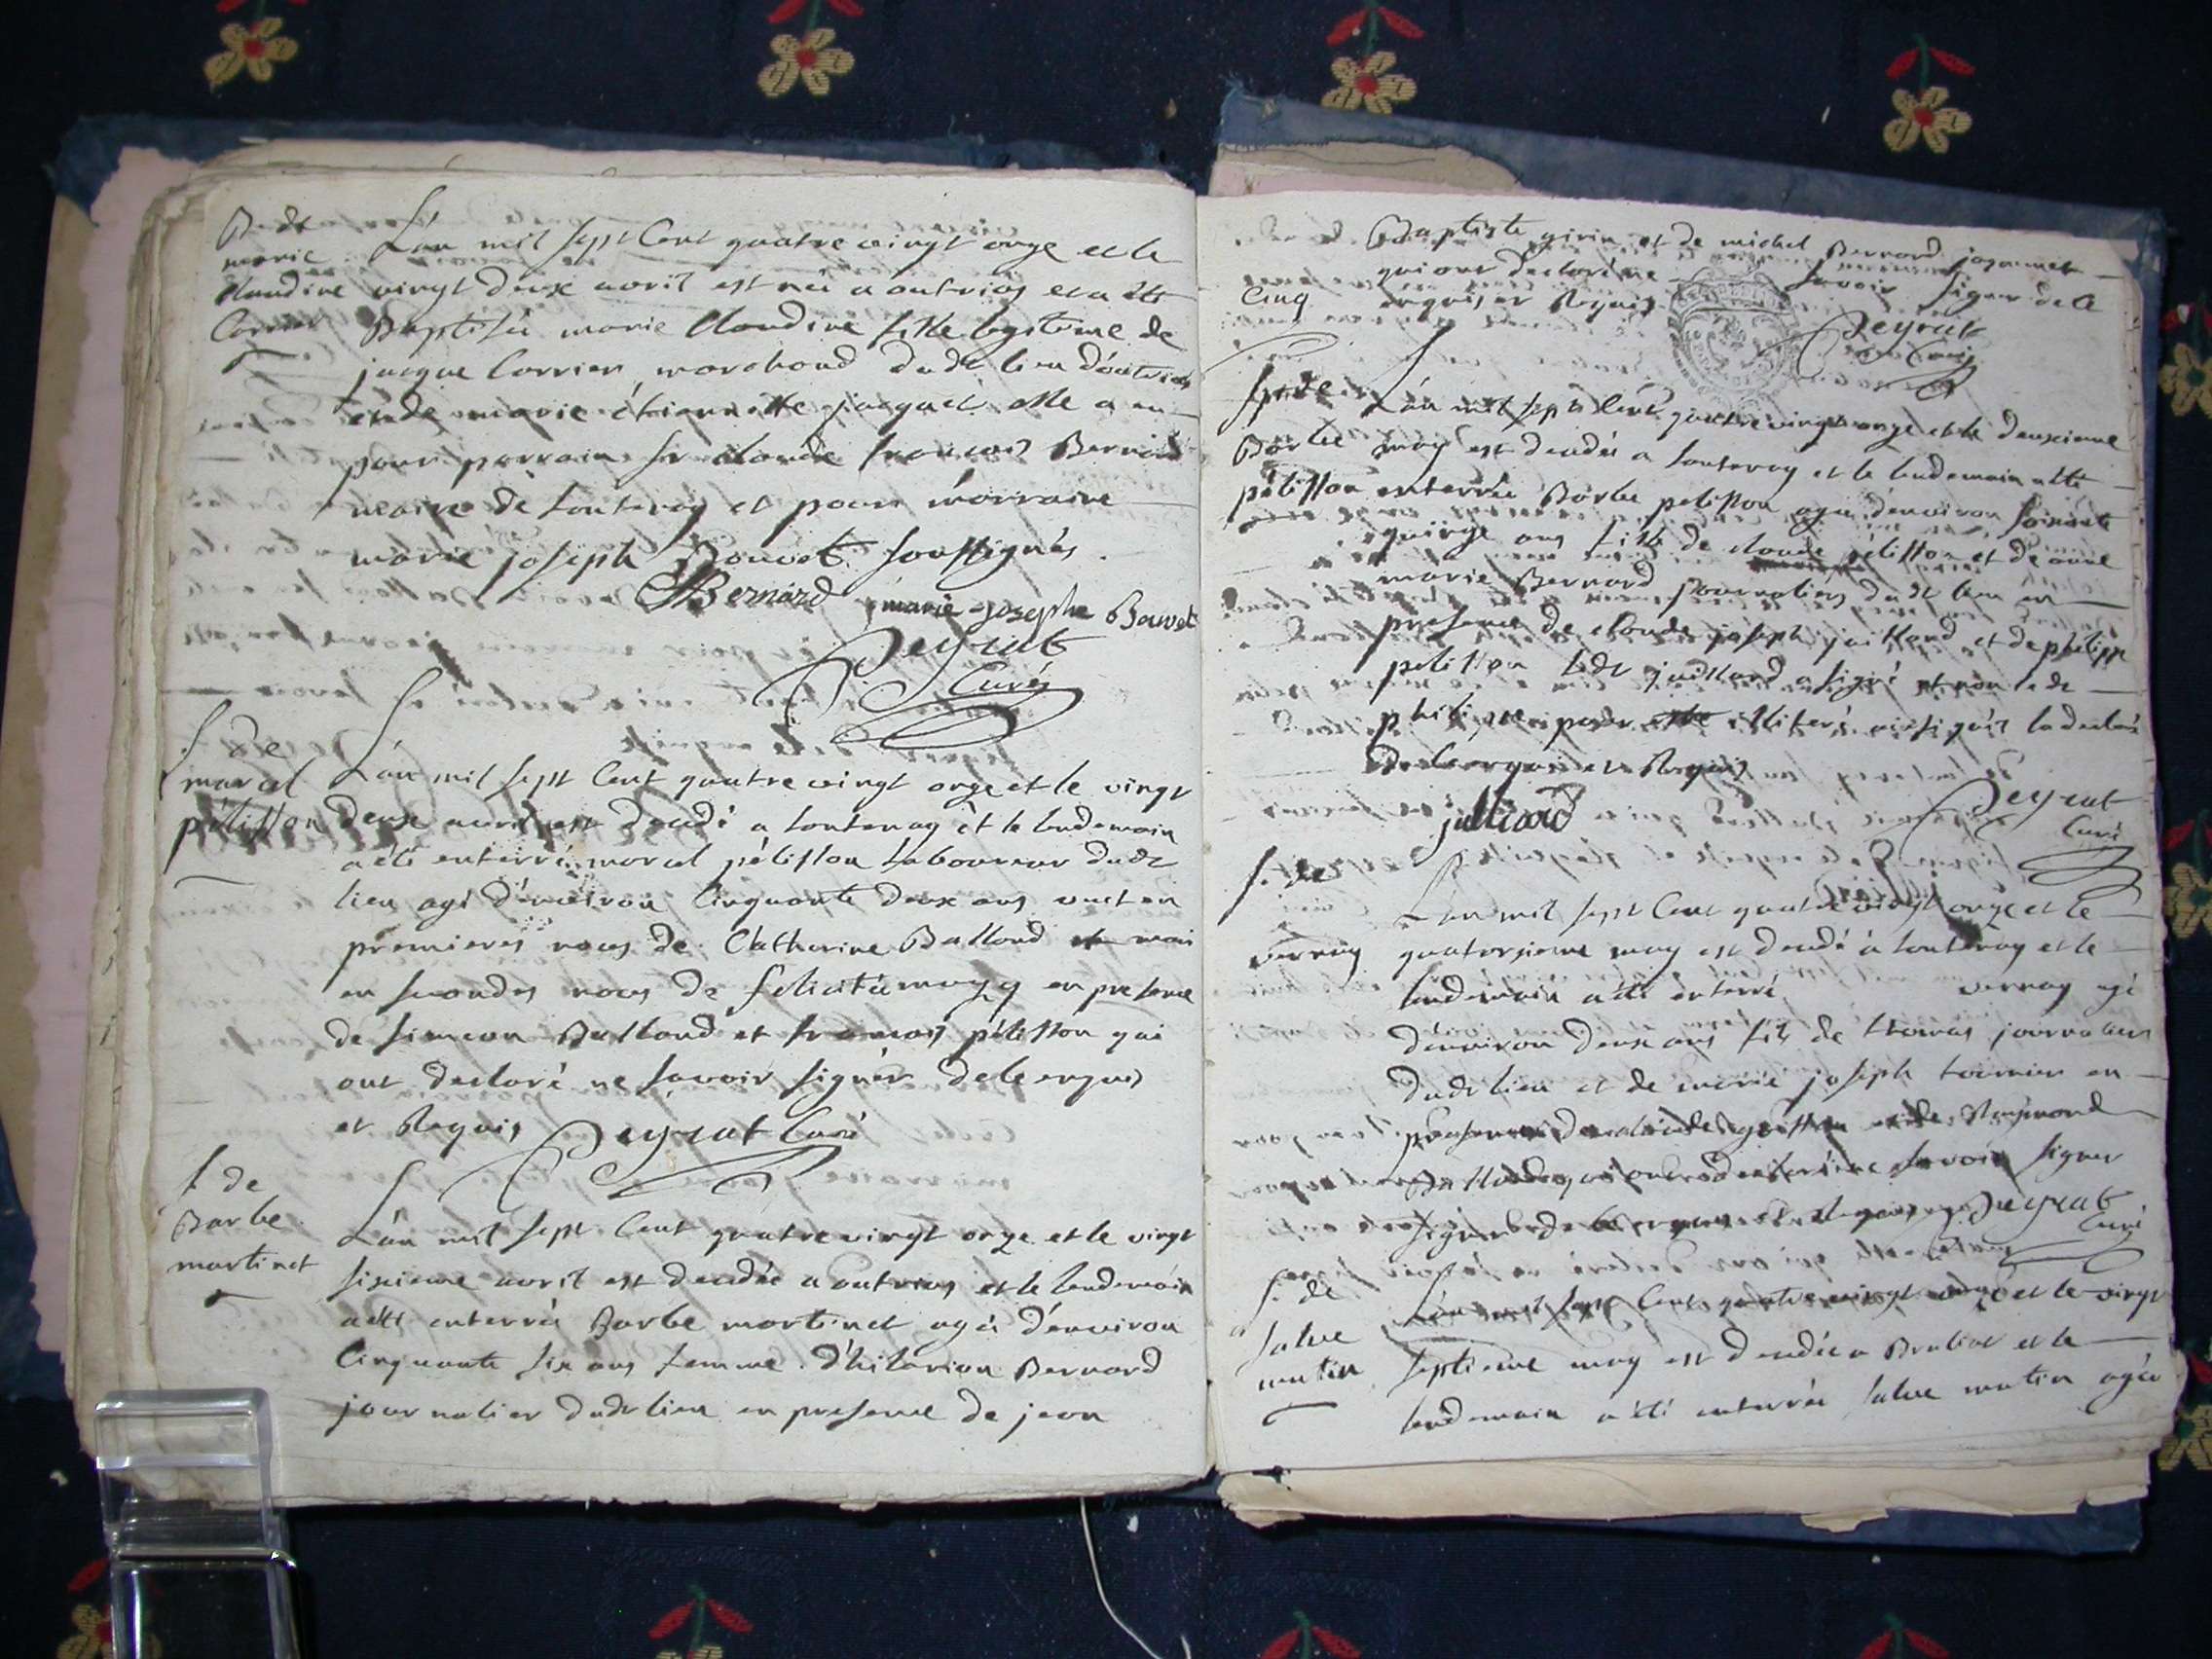 B. de
marie
Claudine
Carrier
L'an mil sept Cent quatre vingt onze et le
vingt deux avril est née a outrias et a été
Baptisée marie Claudine fille legitime de
jacque Carrier marchand dudt lieu d'outrias
et de marie étiennette jacquet elle a eu
pour parrain Sr claude françois Bernard
maire de lantenay et pour marraine
marie joseph Bouvet soussignés.
Bernard marie josephe Bouvet
Peyrat
Curé
S. de
marcel
pélisson
L'an mil sept Cent quatre vingt onze et le vingt
deux avril est decedé a lantenay et le lendemain
a été enterré marcel pélisson laboureur dudt
lieu agé d'environ Cinquante deux ans veuf en
premieres noces de Catharine Balland et mari
en secondes noces de felicité en presence
de simeon Balland et francois pélisson qui
ont declaré ne savoir signer de ce enquis
et Requis Peyrat Curé
S. de
Barbe
martinet
L'an mil sept Cent quatre vingt onze et le vingt
sixieme avril est decedée a outrias et le lendemain
a été enterrée Barbe martinet agée d'environ
Cinquante six ans femme d'hilarion Bernard
journalier dudt lieu en presence de jean
Baptiste girin et de michel Bernard
qui ont declaré ne savoir signer de ce
enquis et Requis
Cinq
Peyrat
Curé
S. de
Barbe
pélisson
L'an mil sept Cent quatre vingt onze et le deuxieme
may est decedée a lantenay et le lendemain a été
enterrée Barbe pelisson agée d'environ soixante
quinze ans fille de claude pélisson et de
marie Bernard journaliers dudt lieu en
presence de claude joseph juilliard et de philippe
pelisson ledt juilliard a signé et non ledt
philippe pour illiteré ainsi qu'il l'a declaré
de ce enquis et Requis
julliard
Peyrat
Curé
S. de
vernay
L'an mil sept Cent quatre vingt onze et le
quatorzieme may est decedé à lantenay et le
lendemain a été enterré vernay agé
d'environ deux ans fils de thomas journalier
dudt lieu et de marie joseph tournier en
presence de claude et de Raymond
Balland qui ont declaré ne savoir signer
signer de ce enquis et Requis Peyrat
Curé
S. de
salue
mutin
L'an mil sept Cent quatre vingt onze et le vingt
septieme may est decedée a Brulias et le
lendemain a été enterrée salue mutin agée